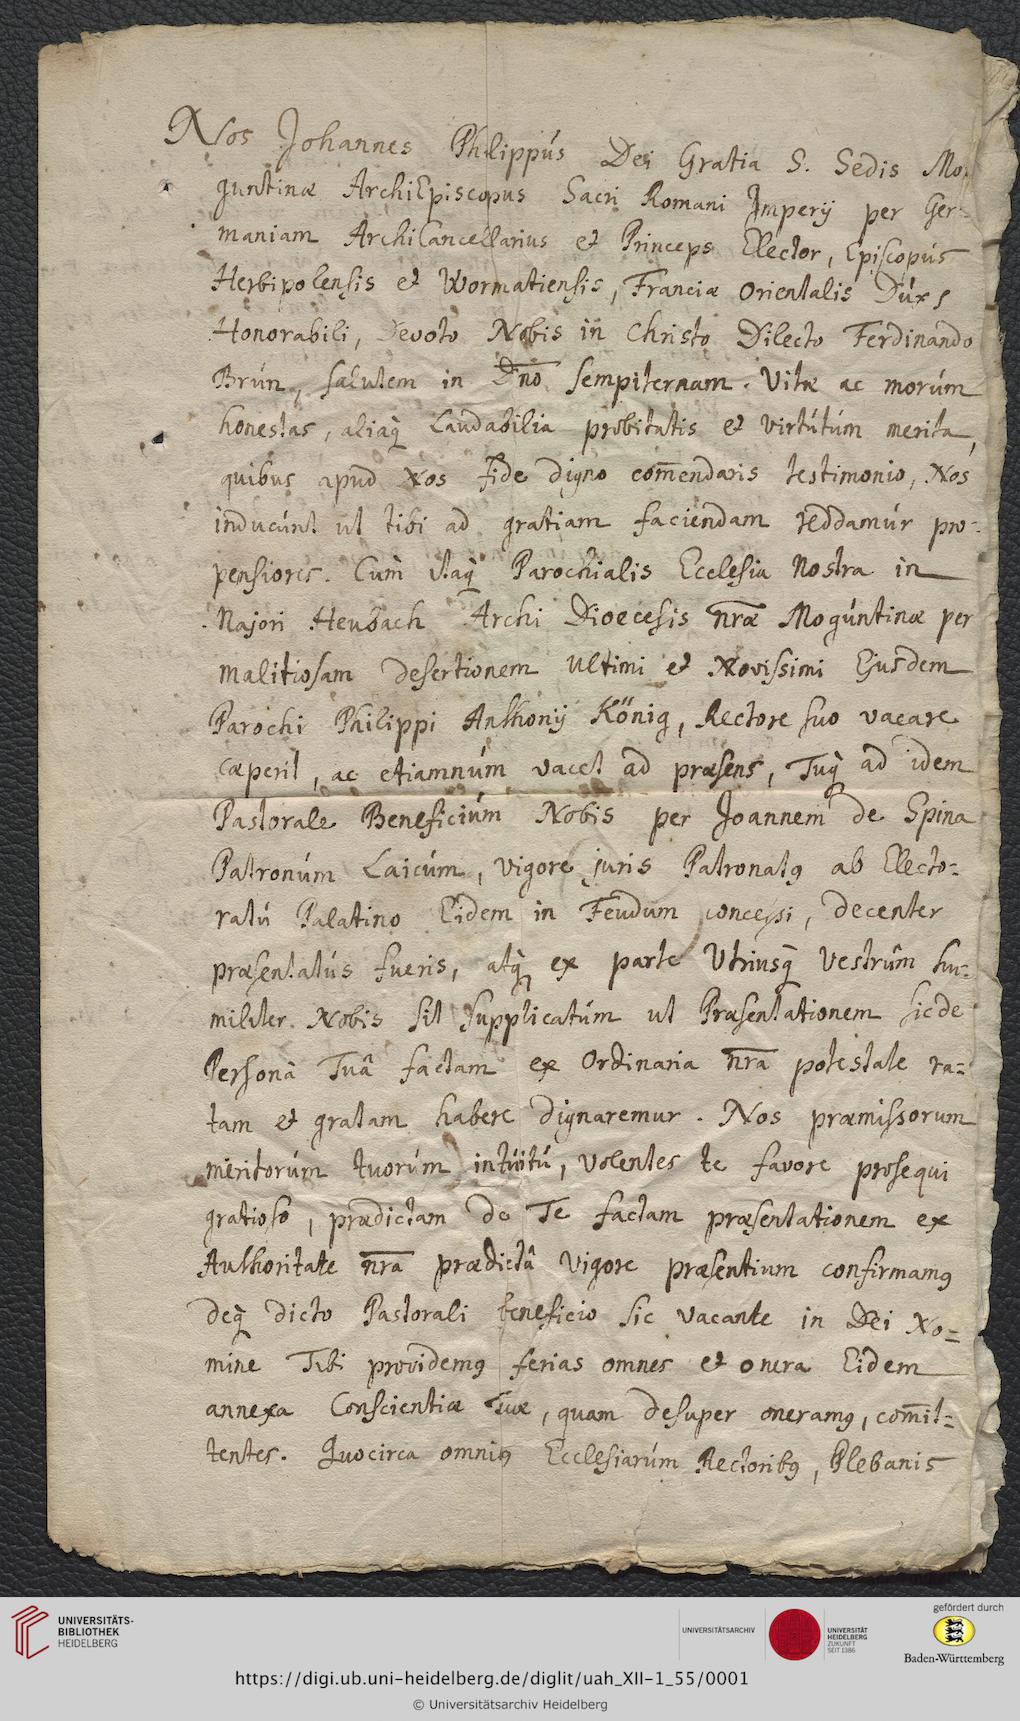 Nos Johannes Philippús Dei Gratia S. Sedis Mo-
guntinæ ArchiEpiscopus Sacri Romani Imperij per Ger-
maniam ArchiCancellarius et Princeps Elector, Episcopús
Herbipolensis et Wormatiensis, Franciæ Orientalis Dúx,
Honorabili, Devoto Nobis in Christo Dilecto Ferdinando
Brún, salutem in Dn̄o sempiternam. Vitæ ac morúm
honestas, aliaq̀ Laudabilia probitatis et virtútúm merita,
quibus apud Nos fide digno com̄endaris testimonio, Nos
inducúnt ut tibi ad gratiam faciendam reddamúr pro-
pensiores. Cum itaq̀ Parochialis Ecclesia Nostra in
Majori Heubach Archi Dioecesis nr̄æ Mogúntinæ per
malitiosam desertionem Ultimi et Novissimi Ejusdem
Parochi Philippi Anthonij König, Rectore suo vacare
cæperit, ac etiamnúm vacet ad præsens, Tuq̀ ad idem
Pastorale Beneficiúm Nobis per Joannem de Spina
Patronúm Laicúm, vigore juris Patronatꝰ ab Electo-
ratú Palatino Eidem in Feudum concessi, decenter
præsentatús fueris, atq̀ ex parte Utriusq̀ Vestrûm hu-
militer Nobis sit supplicatúm ut Præsentationem sic de
Personâ Tuâ factam ex Ordinaria nr̄a potestate ra-
tam et gratam habere dignaremur. Nos præmissorum
meritorúm tuorúm intúitú, volentes te favore prosequi
gratioso, prædictam de Te factam præsentationem ex
Authoritate nr̄a prædictâ vigore præsentium confirmamꝰ
deq̀ dicto Pastorali beneficio sic vacante in Dei No-
mine Tibi providemꝰ ferias omnes et onera Eidem
annexa Conscientiæ Tuæ, quam desuper oneramꝰ, com̄it-
tentes. Quocirca omnibꝰ Ecclesiarúm Rectoribꝰ, Plebanis
UNIVERSITÄTS-
BIBLIOTHEK
HEIDELBERG
UNIVERSITÄTSARCHIV
UNIVERSITÄT
HEIDELBERG
ZUKUNFT
SEIT 1386
gefördert durch
Baden-Württemberg
https://digi.ub.uni-heidelberg.de/diglit/uah_XII-1_55/0001
© Universitätsarchiv Heidelberg